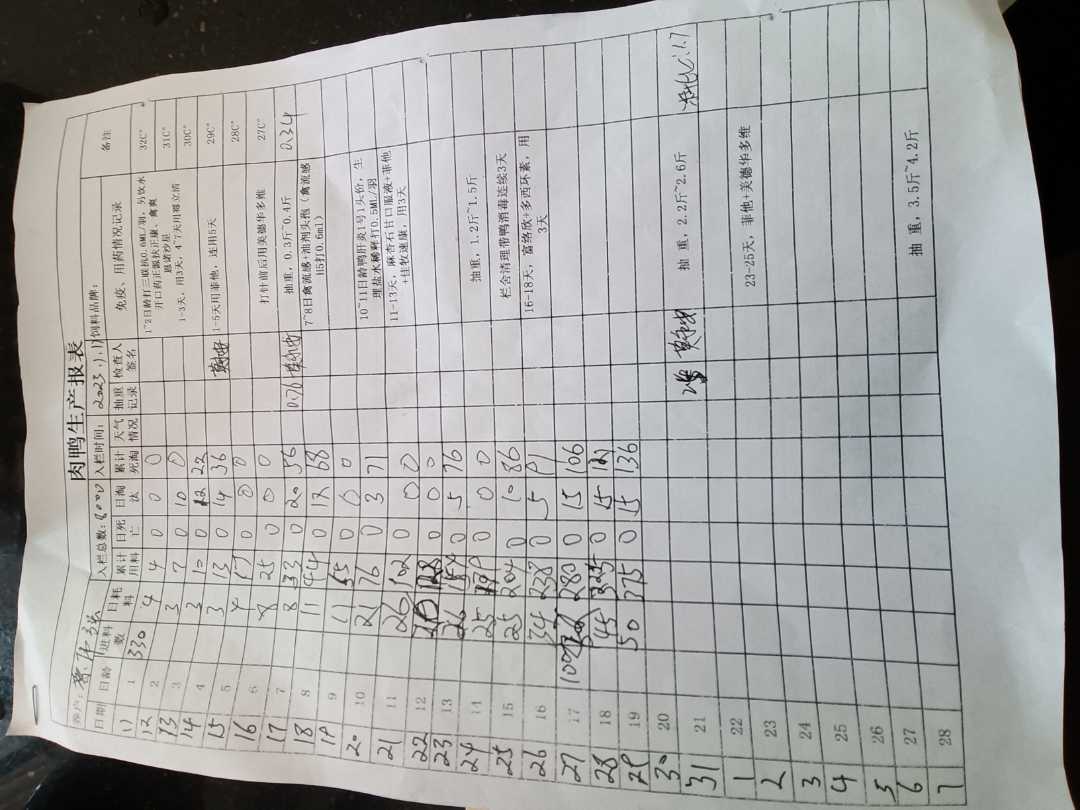 肉鸭生产报表
养户: 入栏总数: 8000 入栏时间: 2023.1.11 饲料品牌:
日期 日龄 进料数 日耗料 累计用料 日死亡 日淘汰 累计死淘 天气情况 抽重记录 检查人签名 免疫、用药情况记录 备注
11 1 330 4 4 0 0 0 1~2日龄打三联抗0.6ML/羽, 另饮水开口药正源扶正康、禽爽 32C°
12 2 3 7 0 10 0 恩诺沙星 31C°
13 3 3 10 0 12 22 1-3天, 用3天, 4~7天用 30C°
14 4 3 13 0 14 36 29C°
15 5 4 17 0 0 0 1-5天用菲他, 连用5天 28C°
16 6 8 25 0 0 0 27C°
17 7 8 33 0 20 56 打针前后用美德华多维
18 8 11 44 0 12 68 抽重, 0.3斤~0.4斤 0.34
19 9 11 55 0 0 0 7~8日禽流感+油剂头孢（禽流感H5打0.6ml）
20 10 21 76 0 3 71
21 11 26 102 0 0 0 10~11日龄鸭肝炎1号1头份, 生理盐水稀释打0.5ML/羽
22 12 128 0 0 0 11-13天, 麻杏石甘口服液+菲他+佳牧速康, 用3天
23 13 26 154 0 5 76
24 14 25 179 0 0 0 抽重, 1.2斤~1.5斤
25 15 25 204 0 10 86 栏舍清理带鸭消毒连续3天
26 16 34 238 0 5 91 16-18天, 富络欣+多西环素, 用3天
27 17 100 280 0 15 106
28 18 45 325 0 15 121
29 19 50 375 0 15 136
30 20
31 21 抽 重, 2.2斤~2.6斤
1 22
2 23 23-25天, 菲他+美德华多维
3 24
4 25
5 26
6 27 抽 重, 3.5斤~4.2斤
7 28